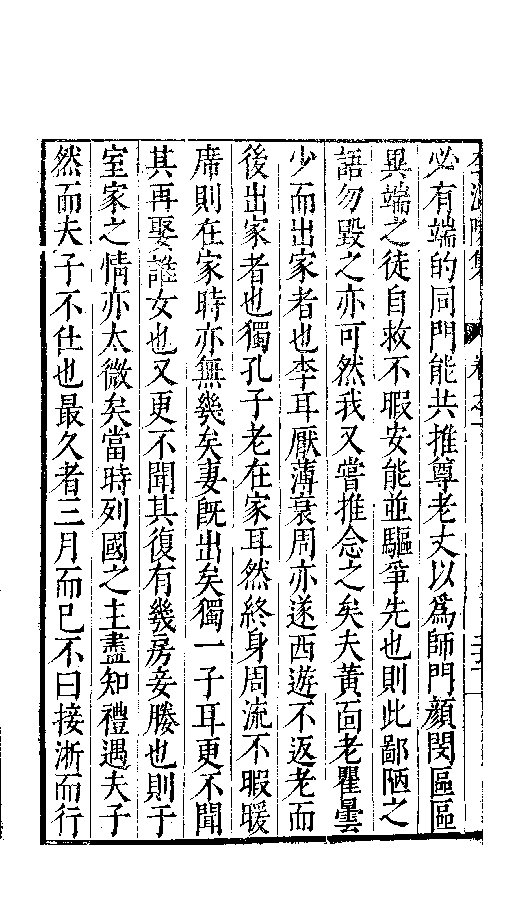 必有端的同門能共推尊老丈以爲師門顔閔區區
異端之徒自救不暇安能並驅爭先也則此鄙陋之
語勿毀之亦可然我又嘗推念之矣夫黃面老瞿曇
少而出家者也李耳厭薄衰周亦遂西遊不返老而
後出家者也獨孔子老在家耳然終身周流不暇暖
席則在家時亦無幾矣妻旣出矣獨一子耳更不聞
其再娶誰女也又更不聞其復有幾房妾媵也則于
室家之情亦太微矣當時列國之主盡知禮遇夫子
然而夫子不仕也最久者三月而已不曰接淅而行